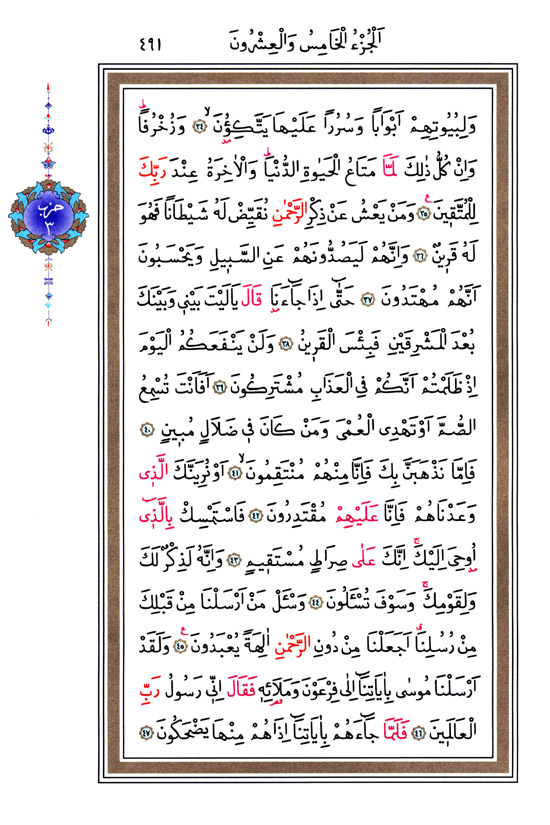 اَلْجُزْءُ الْخَامِسُ وَالْعِشْرُونَ ٤٩١
حزب ٣
وَلِبُيُوتِهِمْ اَبْوَابًا وَسُرُرًا عَلَيْهَا يَتَّكِؤُنَۙ ﴿٣٤﴾ وَزُخْرُفًاۜ
وَاِنْ كُلُّ ذٰلِكَ لَمَّا مَتَاعُ الْحَيٰوةِ الدُّنْيَاۜ وَالْاٰخِرَةُ عِنْدَ رَبِّكَ
لِلْمُتَّقِينَ۟ ﴿٣٥﴾ وَمَنْ يَعْشُ عَنْ ذِكْرِ الرَّحْمٰنِ نُقَيِّضْ لَهُ شَيْطَانًا فَهُوَ
لَهُ قَرِينٌ ﴿٣٦﴾ وَاِنَّهُمْ لَيَصُدُّونَهُمْ عَنِ السَّبِيلِ وَيَحْسَبُونَ
اَنَّهُمْ مُهْتَدُونَ ﴿٣٧﴾ حَتّٰٓى اِذَا جَٓاءَنَا قَالَ يَالَيْتَ بَيْنِي وَبَيْنَكَ
بُعْدَ الْمَشْرِقَيْنِ فَبِئْسَ الْقَرِينُ ﴿٣٨﴾ وَلَنْ يَنْفَعَكُمُ الْيَوْمَ
اِذْ ظَلَمْتُمْ اَنَّكُمْ فِي الْعَذَابِ مُشْتَرِكُونَ ﴿٣٩﴾ اَفَاَنْتَ تُسْمِعُ
الصُّمَّ اَوْ تَهْدِي الْعُمْيَ وَمَنْ كَانَ فِي ضَلَالٍ مُبِينٍ ﴿٤٠﴾
فَاِمَّا نَذْهَبَنَّ بِكَ فَاِنَّا مِنْهُمْ مُنْتَقِمُونَۙ ﴿٤١﴾ اَوْ نُرِيَنَّكَ الَّذِي
وَعَدْنَاهُمْ فَاِنَّا عَلَيْهِمْ مُقْتَدِرُونَ ﴿٤٢﴾ فَاسْتَمْسِكْ بِالَّذِٓي
اُو۫حِيَ اِلَيْكَۚ اِنَّكَ عَلٰى صِرَاطٍ مُسْتَقِيمٍ ﴿٤٣﴾ وَاِنَّهُ لَذِكْرٌ لَكَ
وَلِقَوْمِكَۚ وَسَوْفَ تُسْـَٔلُونَ ﴿٤٤﴾ وَسْـَٔلْ مَنْ اَرْسَلْنَا مِنْ قَبْلِكَ
مِنْ رُسُلِنَاۗ اَجَعَلْنَا مِنْ دُونِ الرَّحْمٰنِ اٰلِهَةً يُعْبَدُونَ۟ ﴿٤٥﴾ وَلَقَدْ
اَرْسَلْنَا مُوسٰى بِاٰيَاتِنَٓا اِلٰى فِرْعَوْنَ وَمَلَا۬ئِهِ فَقَالَ اِنِّي رَسُولُ رَبِّ
الْعَالَمِينَ ﴿٤٦﴾ فَلَمَّا جَٓاءَهُمْ بِاٰيَاتِنَٓا اِذَا هُمْ مِنْهَا يَضْحَكُونَ ﴿٤٧﴾